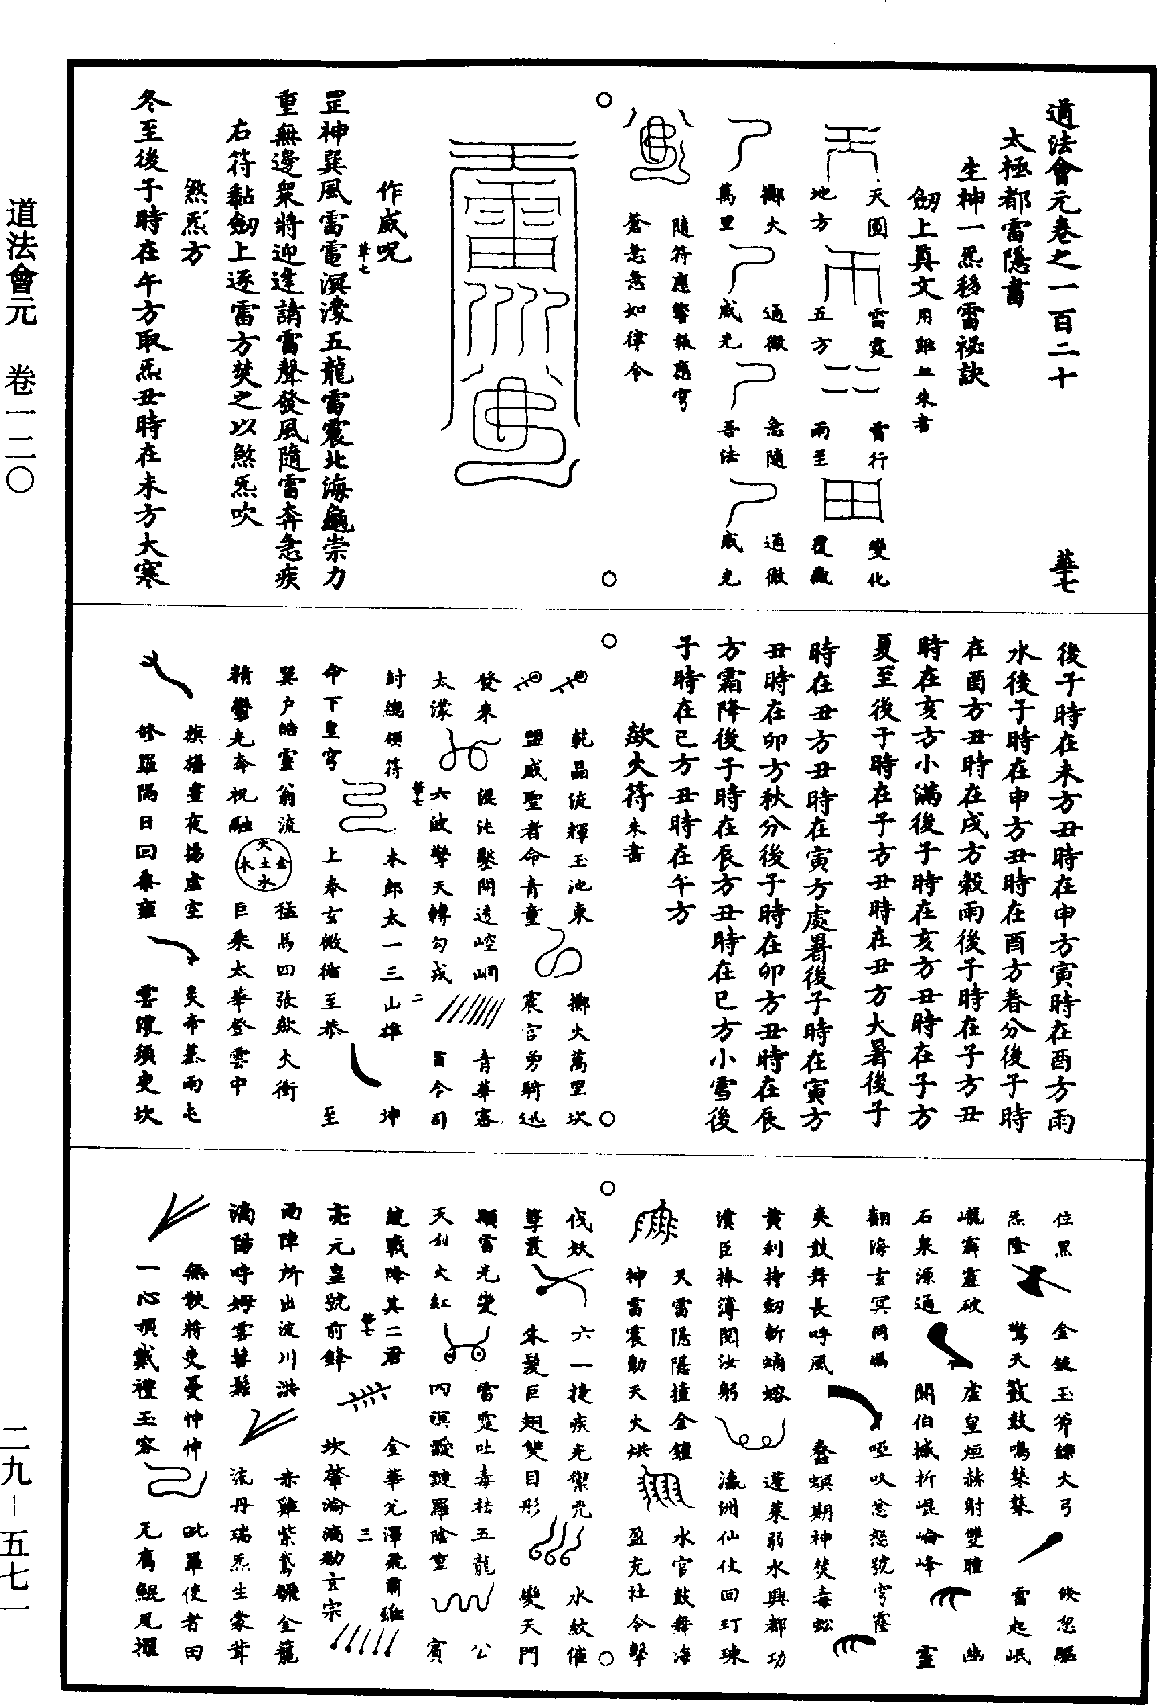 道法會元卷之一百二十 華七
太極都雷隱書
生神一炁移雷祕訣
劒上真文用雞血朱書
天圓
地方
雷霆
五方
雷行
雨至
變化
擲火
萬里
通徹
威光
急隨
吾法
通徹
威光
隨符應響報應穹
蒼急急如律令
作威呪
罡神巽風雷電溟濛五龍雷震北海龜崇力
重無邊眾將迎逢請雷聲發風隨雷奔急疾
右符黏劒上逐雷方焚之以煞炁吹
煞炁方
冬至後子時在午方取炁丑時在未方大寒
後子時在未方丑時在申方寅時在酉方雨
水後子時在申方丑時在酉方春分後子時
在酉方丑時在戌方穀雨後子時在子方丑
時在亥方小滿後子時在亥方丑時在子方
夏至後子時在子方丑時在丑方大暑後子
時在丑方丑時在寅方處暑後子時在寅方
丑時在卯方秋分後子時在卯方丑時在辰
方霜降後子時在辰方丑時在巳方小雪後
子時在巳方丑時在午方
歘火符朱書
乾晶流輝玉池東
盟威聖者命青童
擲火萬里坎
震宮勇騎迅
發來
太濛
混沌鑿開透崆峒
六波擎天轉勾戎
青華客
首令司
財總領符
命下皇穹
本郎太一三山峰
上奉玄微徹至恭
坤
至
巽户皓靈翁流
精鬱光奔祝融
火土金木水
猛馬四張歘火衝
巨乘太華登雲中
旗幡晝夜揚虛空
修羅隔日回桑雍
炎帝基雨屯
雲獲須臾坎
位黑
炁隆
金鉞玉斧鍊大弓
驚天鼓鼓鳴鼕鼕
倏忽驅
雷起岷
嶬霹靈破
石泉源通
虛皇烜赫射雙瞳
開伯摵折崑崙峰
幽
靈
翻海玄冥岡
啞以忿怨號穹窿
夾鼓舞長呼風
奮蜈期神焚毒蚣
黃利持劒斬蝻螉
濆臣捧簿閱汝躬
蓬萊弱水興都功
瀛洲仙仗回玎璪
天雷隱隱撞金鐘
神雷震動天火烘
水官鼓舞海
盈充社令擊
伐妖
孽叢
六一捷疾光禦兇
朱髮巨翅雙目彤
水紋催
變天門
顯雷光變
天利火紅
雷霆吐毒枯五龍
内溟濛鏈羅陰童
公
賓
統戰降其二君
亮元皇號前鋒
金華允澤飛蕭維
坎肇淪漓勑玄宗
雨陣所出流川洪
滴歸呼姆雲鬟鬆
赤雞紫鵞鑣金籠
流丹瑞炁生蒙茸
無敢將吏憂忡忡
一心頂戴禮玉容
吡羅使者田
元鷹鯤凡擢
道法會元 卷一二〇
二九—五七一